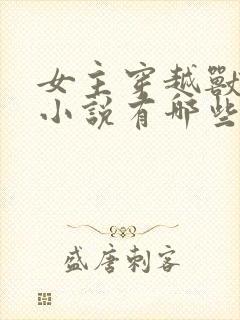 女主穿越獸
小說有哪些
盛唐刺客